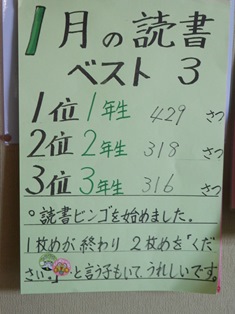 1月の読書
ベスト 3
1位 1年生 429 さつ
2位 2年生 318 さつ
3位 3年生 316 さつ
○読書ビンゴを始めました。
1枚めが終わり 2枚めを「くだ
さい。」と言う子もいて、うれしいです。